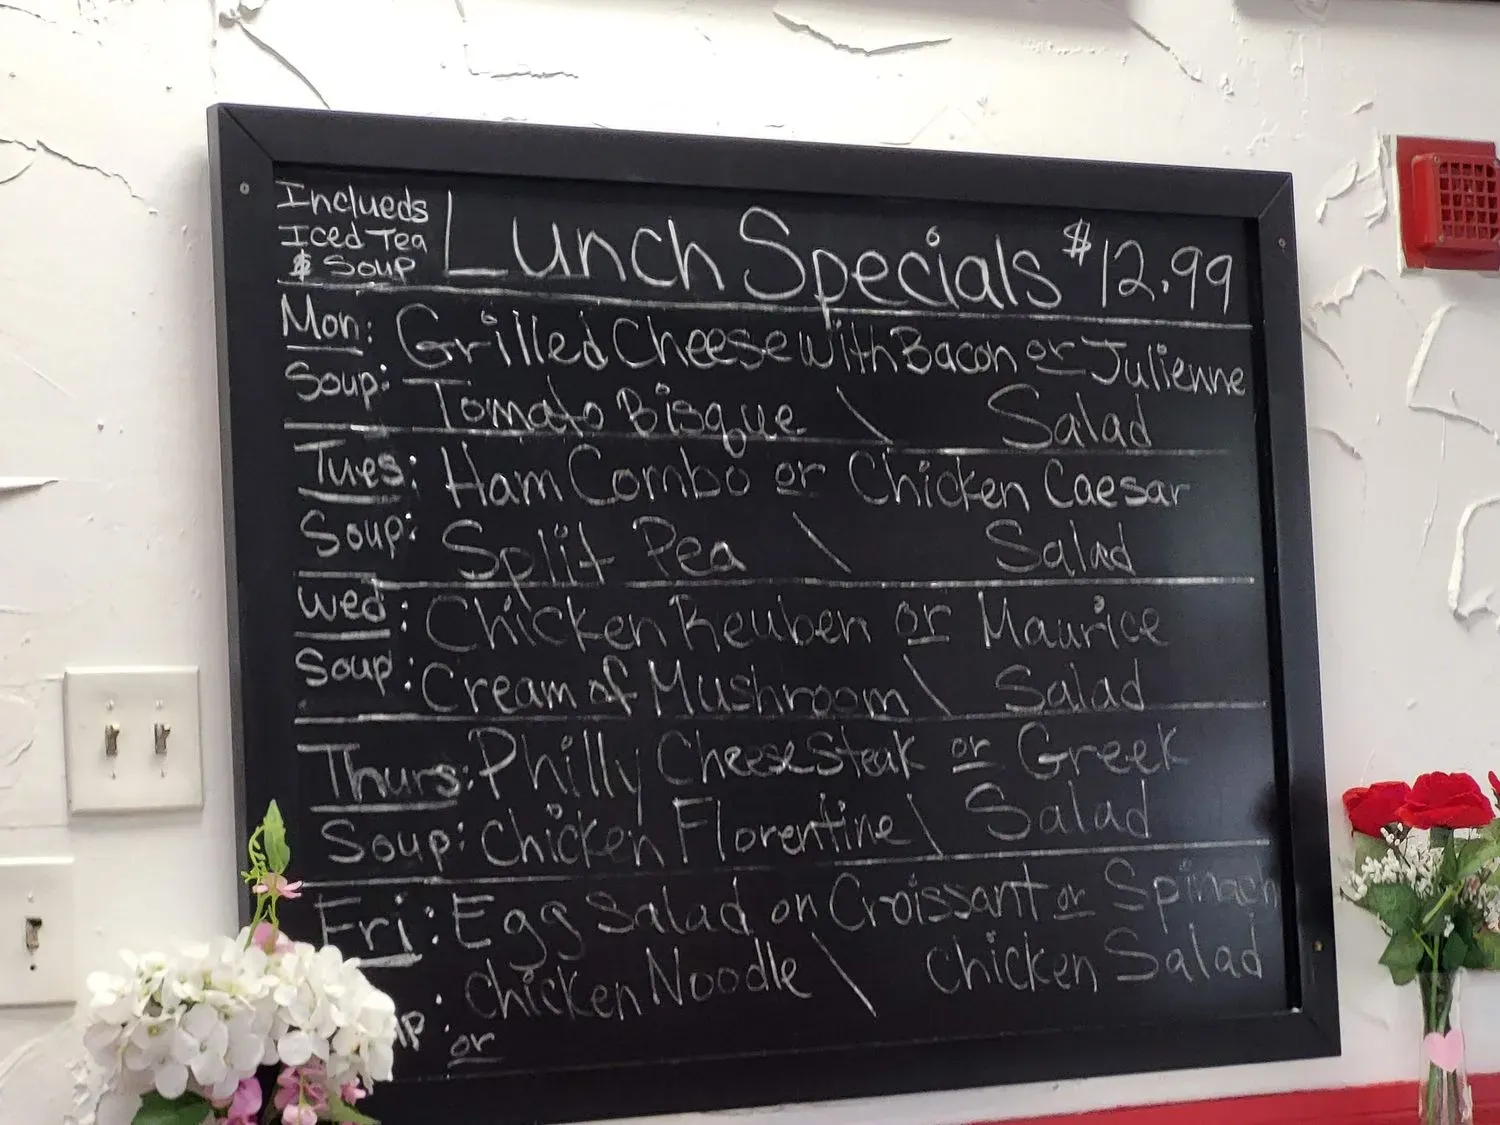 Inclueds
Iced Tea
& Soup
Lunch Specials $12.99
Mon: Grilled Cheese with Bacon or Julienne
Soup: Tomato Bisque \ Salad
Tues: Ham Combo or Chicken Caesar
Soup: Split Pea \ Salad
Wed: Chicken Reuben or Maurice
Soup: Cream of Mushroom \ Salad
Thurs: Philly CheeseSteak or Greek
Soup: Chicken Florentine \ Salad
Fri: Egg Salad on Croissant or Spinach
up: Chicken Noodle \ Chicken Salad
or